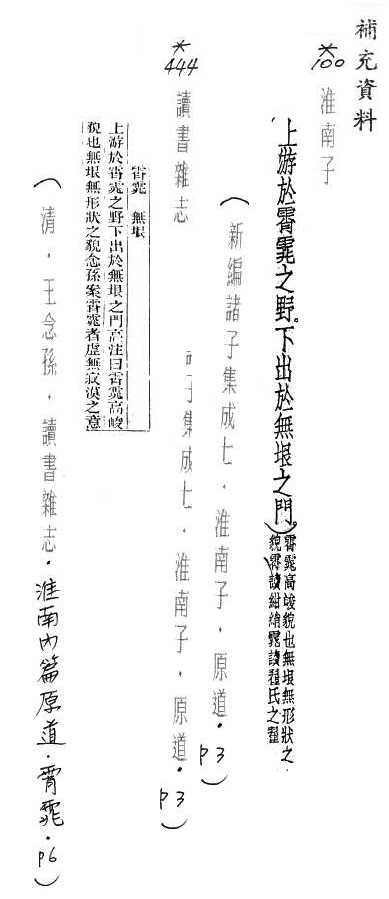 補充資料
*100
淮南子
上游於霄雿之野。下出於無垠之門。
霄雿高峻貌也無垠無形狀之
貌霄讀紺綃雿讀翟氏之翟
(新編諸子集成七.淮南子.原道.P3)
子集成七.淮南子.原道.P3)
*444
讀書雜志
霄雿 無垠
上游於霄雿之野下出於無垠之門高注曰霄雿高峻
貌也無垠無形狀之貌念孫案霄雿者虛無寂漠之意
(清.王念孫.讀書雜志.淮南內篇原道.霄雿.P6)